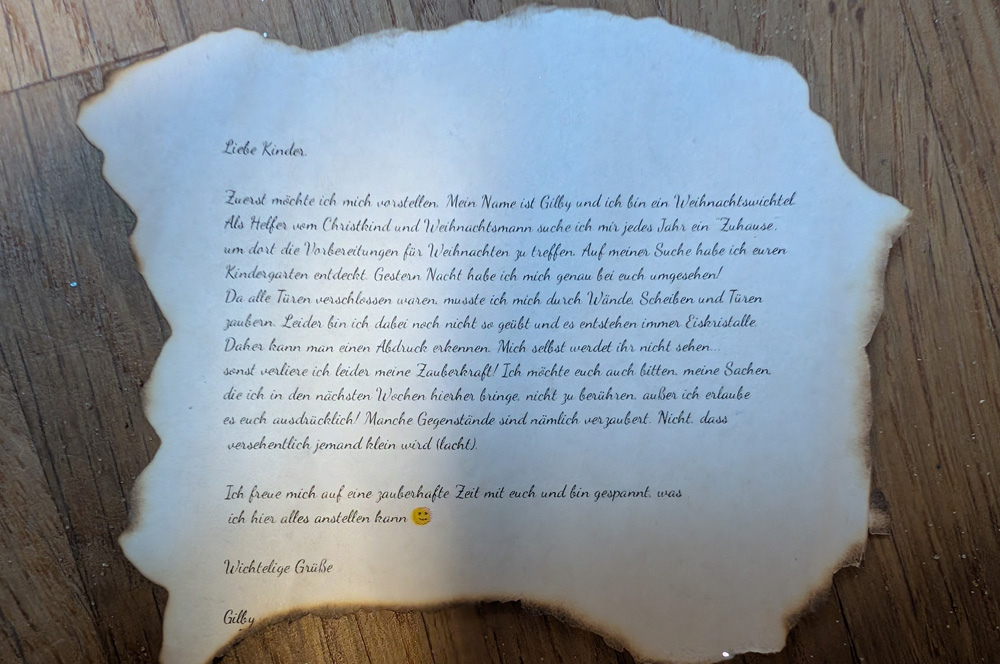 Liebe Kinder,
Zuerst möchte ich mich vorstellen. Mein Name ist Gilby und ich bin ein Weihnachtswichtel.
Als Helfer vom Christkind und Weihnachtsmann suche ich mir jedes Jahr ein "Zuhause",
um dort die Vorbereitungen für Weihnachten zu treffen. Auf meiner Suche habe ich euren
Kindergarten entdeckt. Gestern Nacht habe ich mich genau bei euch umgesehen!
Da alle Türen verschlossen waren, musste ich mich durch Wände, Scheiben und Türen
zaubern. Leider bin ich dabei noch nicht so geübt und es entstehen immer Eiskristalle.
Daher kann man einen Abdruck erkennen. Mich selbst werdet ihr nicht sehen...
sonst verliere ich leider meine Zauberkraft! Ich möchte euch auch bitten, meine Sachen,
die ich in den nächsten Wochen hierher bringe, nicht zu berühren, außer ich erlaube
es euch ausdrücklich! Manche Gegenstände sind nämlich verzaubert. Nicht, dass
versehentlich jemand klein wird (lacht).
Ich freue mich auf eine zauberhafte Zeit mit euch und bin gespannt, was
ich hier alles anstellen kann 🙂
Wichtelige Grüße
Gilby